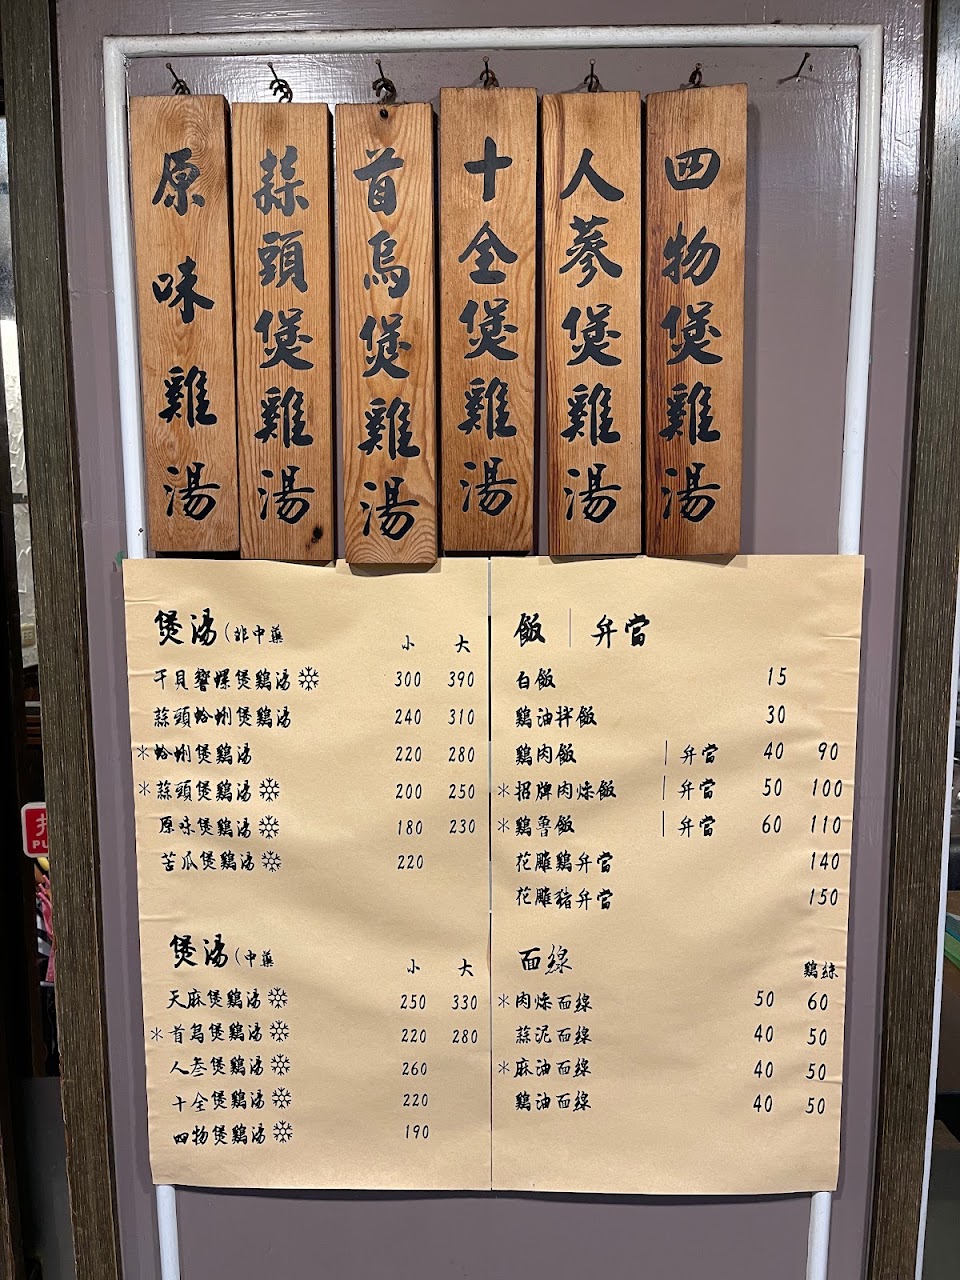 原味雞湯
蒜頭煲雞湯
首烏煲雞湯
十全煲雞湯
人蔘煲雞湯
四物煲雞湯
煲湯(非中藥
小 大
干貝響螺煲鷄湯 300 390
蒜頭蛤蜊煲鷄湯 240 310
*蛤蜊煲鷄湯 220 280
*蒜頭煲鷄湯 200 250
原味煲鷄湯 180 230
苦瓜煲鷄湯 220
煲湯(中藥
小 大
天麻煲鷄湯 250 330
*首烏煲鷄湯 220 280
人叁煲鷄湯 260
十全煲鷄湯 220
四物煲鷄湯 190
飯 | 弁當
白飯 15
鷄油拌飯 30
鷄肉飯 | 弁當 40 90
*招牌肉燥飯 | 弁當 50 100
*鷄魯飯 | 弁當 60 110
花雕鷄弁當 140
花雕豬弁當 150
面線
鷄絲
*肉燥面線 50 60
蒜泥面線 40 50
*麻油面線 40 50
鷄油面線 40 50
PU